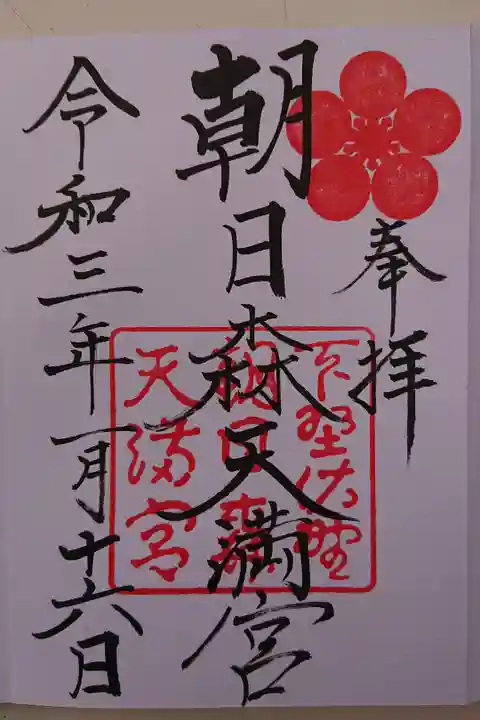 奉拝
朝日森天満宮
令和三年一月十六日
下野佐野
朝日森
天満宮